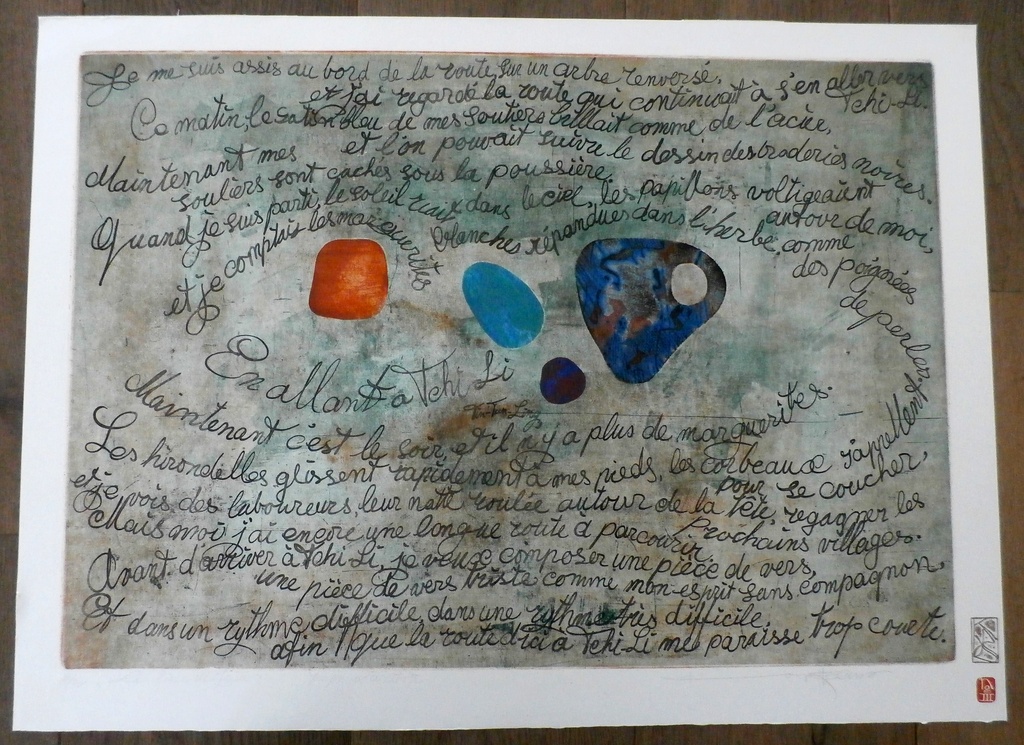 Je me suis assis au bord de la route, sur un arbre renversé,
et j'ai regardé la route qui continuait à s'en aller vers
Tchi-Li.
Ce matin, le satin bleu de mes souliers brillait comme de l'acier,
et l'on pouvait suivre le dessin des broderies noires.
Maintenant mes
souliers sont cachés sous la poussière.
Quand je suis parti, le soleil riait dans le ciel, les papillons voltigeaient
autour de moi,
et je comptais les marguerites
blanches, répandues dans l'herbe, comme
des poignées
de perles.
En allant à Tchi Li
Maintenant c'est le soir, et il n'y a plus de marguerites.
Les hirondelles glissent rapidement à mes pieds, les corbeaux s'appellent
pour se coucher,
et je vois des laboureurs, leur natte roulée autour de la tête, regagner les
prochains villages.
Mais moi j'ai encore une longue route à parcourir.
Avant d'arriver à Tchi-Li, je veux composer une pièce de vers,
une pièce de vers triste comme mon esprit sans compagnon,
Et dans un rythme difficile, dans une rythme très difficile,
afin que la route d'ici à Tchi-Li me paraisse trop courte.